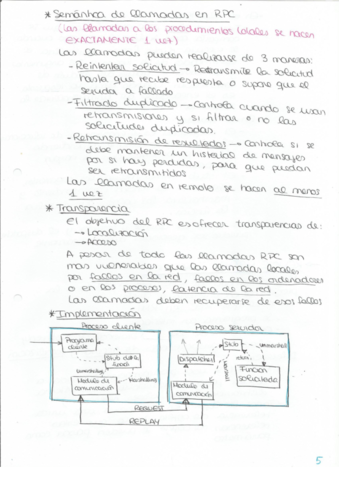 * Semántica de llamadas en RPC
(Las llamadas a los procedimientos locales se hacen
EXACTAMENTE 1 vez)
Las llamadas pueden realizarse de 3 maneras:
- Reintentar solicitud → Retransmite la solicitud
hasta que recibe respuesta o supone que el
servidor a fallado
- Filtrado duplicado → Controla cuando se usan
retransmisiones y si filtrar o no las
solicitudes duplicadas.
- Retransmisión de resultados → Controla si se
debe mantener un historial de mensajes
por si hay perdidas, para que puedan
ser retransmitidos
Las llamadas en remoto se hacen al menos
1 vez
* Transparencia
El objetivo del RPC es ofrecer transparencias de:
→ Localización
→ Acceso
A pesar de todo las llamadas RPC son
mas vulnerables que las llamadas locales
por fallos en la red, fallos en los ordenadores
o en los procesos, latencia de la red.
Las llamadas deben recuperarse de esos fallos
* Implementación
Proceso cliente
Proceso servidor
Programa
cliente
Stub
Dispatcher
Función
solicitada
Modulo de
comunicación
Modulo de
comunicación
REQUEST
REPLAY
5